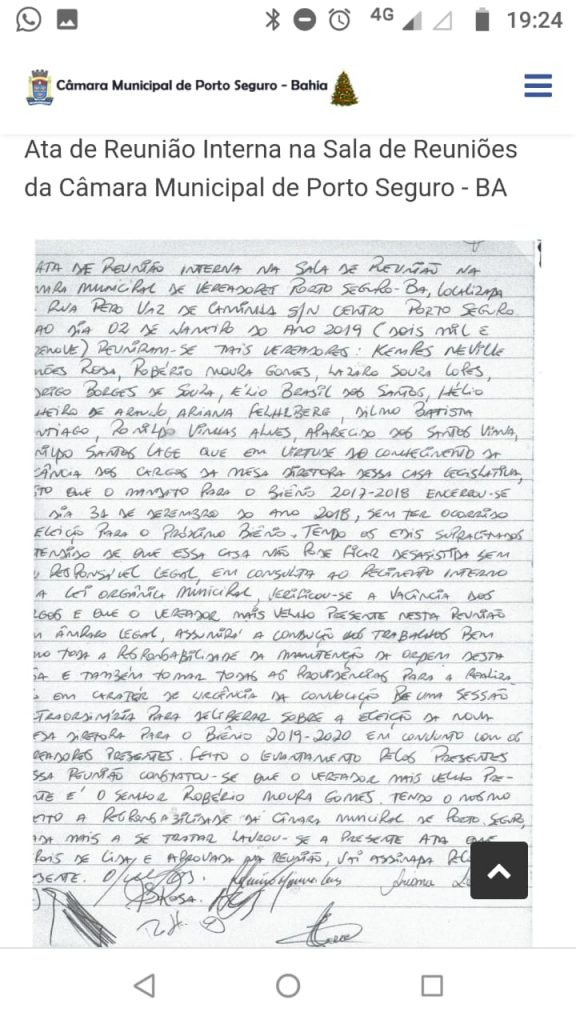 4G 19:24
Câmara Municipal de Porto Seguro - Bahia
Ata de Reunião Interna na Sala de Reuniões
da Câmara Municipal de Porto Seguro - BA
ATA DE REUNIÃO INTERNA NA SALA DE REUNIÃO NA
MARA MUNICIPAL DE VEREADORES PORTO SEGURO-BA, LOCALIZADA
RUA PERO VAZ DE CAMINHA S/N CENTRO PORTO SEGURO
AO DIA 02 DE JANEIRO DO ANO 2019 (DOIS MIL E
ENOVE) REUNIRAM-SE TAIS VEREADORES: KEMPES NEVILLE
ÕES ROSA, ROBÉRIO MOURA GOMES, LAZARO SOUZA LOPES,
DRIGO BORGES DE SOUZA, ÉLIO BRASIL DOS SANTOS, HÉLIO
HEIRO DE ARAUJO ARIANA FEHLBERG, DILMO BATISTA
NTIAGO, RONILDO VINHAS ALVES, APARECIDO DOS SANTOS VIANA,
NILDO SANTOS LAGE QUE EM VIRTUDE DO CONHECIMENTO DA
CÂNCIA DOS CARGOS DA MESA DIRETORA DESSA CASA LEGISLATIVA,
TO QUE O MANDATO PARA O BIÊNIO 2017-2018 ENCERROU-SE
DIA 31 DE DEZEMBRO DO ANO 2018, SEM TER OCORRIDO
ELEIÇÃO PARA O PRÓXIMO BIÊNIO. TENDO OS EDIS SUPRACITADOS
TENDIDO DE QUE ESSA CASA NÃO PODE FICAR DESASSISTIDA SEM
RESPONSÁVEL LEGAL, EM CONSULTA AO REGIMENTO INTERNO
A LEI ORGÂNICA MUNICIPAL, VERIFICOU-SE A VACÂNCIA DOS
RGOS E QUE O VEREADOR MAIS VELHO PRESENTE NESTA REUNIÃO
M ÂMPARO LEGAL, ASSUMIRÁ A CONDUÇÃO DOS TRABALHOS BEM
MO TODA A RESPONSABILIDADE DA MANUTENÇÃO DA ORDEM DESTA
SA E TAMBÉM TOMAR TODAS AS PROVIDÊNCIAS PARA A REALIZA
EM CARATER DE URGÊNCIA DA CONVOCAÇÃO DE UMA SESSÃO
TRAORDINÁRIA PARA DELIBERAR SOBRE A ELEIÇÃO DA NOVA
ESA DIRETORA PARA O BIÊNIO 2019-2020 EM CONJUNTO COM OS
READORES PRESENTES. FEITO O LEVANTAMENTO PELOS PRESENTES
SSA REUNIÃO CONSTATOU-SE QUE O VEREADOR MAIS VELHO PRE-
NTE É O SENHOR ROBÉRIO MOURA GOMES. TENDO O MESMO
EITO A RESPONSABILIDADE DA CÂMARA MUNICIPAL DE PORTO SEGURO,
ADA MAIS A SE TRATAR LAVROU-SE A PRESENTE ATA QUE
POIS DE LIDA E APROVADA NA REUNIÃO, VAI ASSINADA PELOS
SENTE.